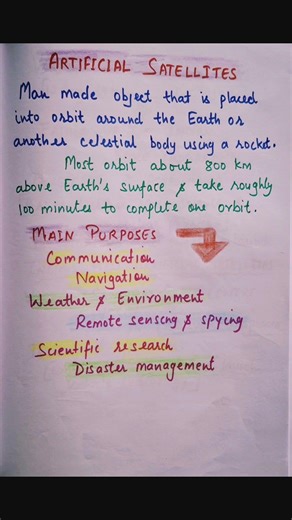 ARTIFICIAL SATELLITES
Man made object that is placed
into orbit around the Earth or
another celestial body using a rocket.
Most orbit about 800 km
above Earth's surface & take roughly
100 minutes to complete one orbit.
MAIN PURPOSES
Communication
Navigation
Weather & Environment
Remote sensing & spying
Scientific research
Disaster management